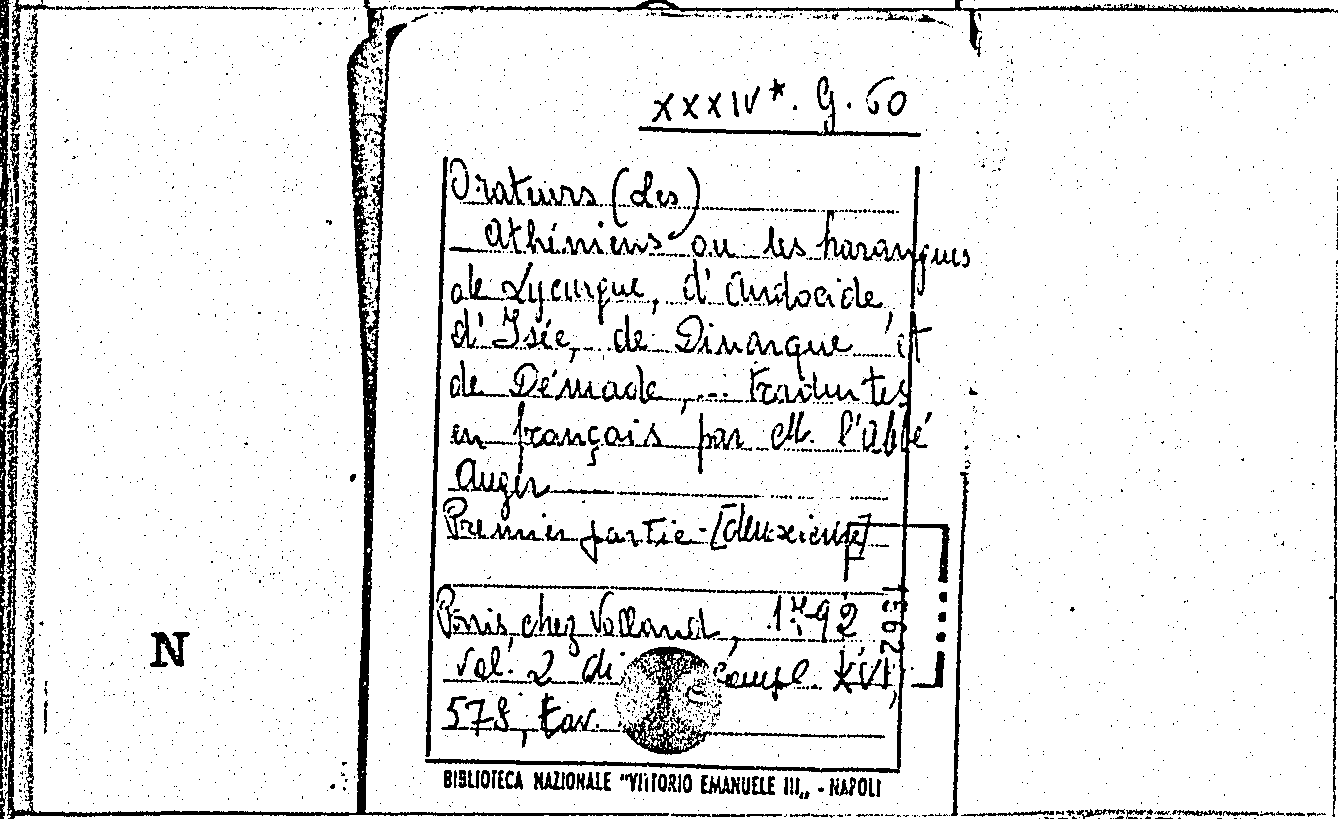 XXXIV*. G. 60
Orateurs (Les)
Athéniens ou les harangues
de Lycurgue, d'Andocide,
d'Isée, de Dinarque et
de Démade, ... traduites
en français par M. l'Abbé
Auger
Premier partie - [deuxieme]
Paris, chez Volland, 1792
vol. 2 di compl. XVI,
578, tav.
1362
N
BIBLIOTECA NAZIONALE "VITTORIO EMANUELE III„ - NAPOLI